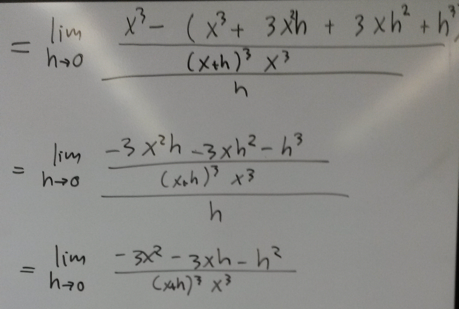 = lim h→0 x³ - (x³ + 3x²h + 3xh² + h³)
(x+h)³ x³
h
= lim h→0 -3x²h - 3xh² - h³
(x+h)³ x³
h
= lim h→0 -3x² - 3xh - h²
(x+h)³ x³